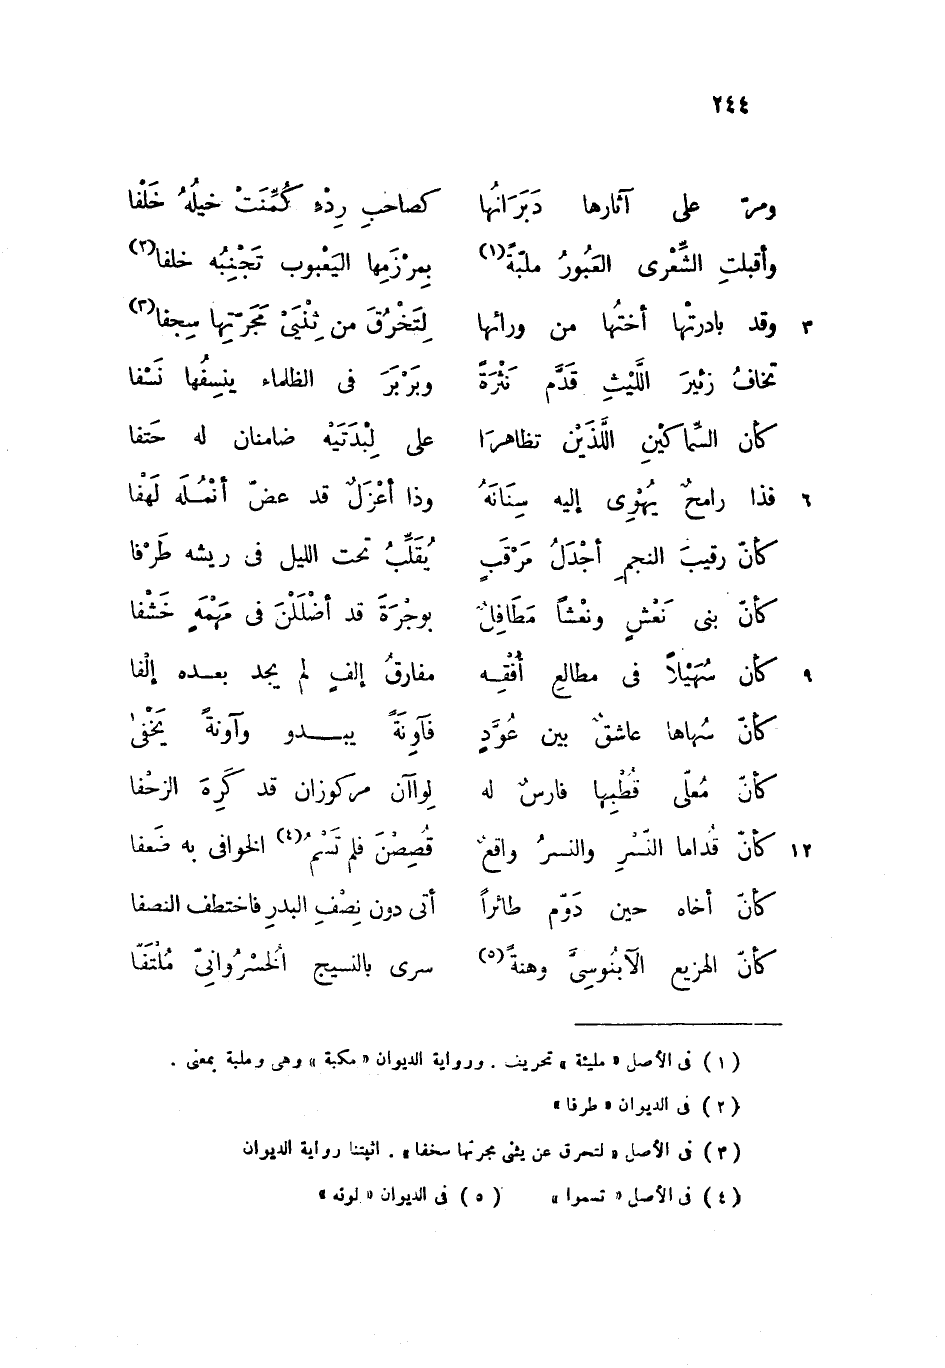 ٢٤٤
ومرّ على آثارها دَبَرَانُها كصاحبِ رِدْءٍ كُمِّنَتْ خيلُهُ خَلْفا
وأقبلتِ الشِّعْرى العَبُورُ ملبّةً(١) بِمِرْزَمِها اليَعْبوب تَجْنِبُه خلفا(٢)
٣ وقد بادرتْها أختُها من ورائها لِتَخْرُقَ من ثِنْيَىْ مَجَرّتِها سِجفا(٣)
تخافُ زئيرَ اللَّيْثِ قَدَّم نَثْرَةً وبَرْبَرَ فى الظلماء ينسِفُها نَسْفا
كأن السِّماكَيْنِ اللَّذَيْن تظاهرَا على لِبْدَتَيْه ضامنان له حَتفا
٦ فذا رامحٌ يُهْوِى إليه سِنَانَهُ وذا أعْزَلٌ قد عضّ أنْمُلَه لَهْفا
كأنّ رقيبَ النجمِ أجْدَلُ مَرْقَبٍ يُقَلِّبُ تحت الليل فى ريشه طَرْفا
كأنّ بنى نَعْشٍ ونعْشاً مَطَافِلٌ بوجْرَةَ قد أضْلَلْنَ فى مَهْمَهٍ خَشْفا
٩ كأن سُهَيْلاً فى مطالعِ أُفْقِه مفارقُ إلفٍ لم يجد بعده إلْفا
كأنّ سُهاها عاشقٌ بين عُوَّدٍ فآوِنَةً يبدو وآونةً يَخْفىٰ
كأنّ مُعلّى قُطْبِها فارسٌ له لِواآن مركوزان قد كَرِهَ الزحْفا
١٢ كأنّ قُداما النَّسْرِ والنسرُ واقعٌ قُصِصْنَ فلم تَسْمُ(٤) الخوافى به ضَعفا
كأنّ أخاه حين دَوّم طائراً أتى دون نِصْفِ البدرِ فاختطف النصفا
كأنّ الهزيع الآبنُوسِىَّ وهنةً(٥) سرى بالنسيج الخُسْرُوانىّ مُلْتَفّا
(١) فى الأصل « مليئة » تحريف . ورواية الديوان « مكبة » وهى وملبة بمعنى .
(٢) فى الديوان « طرفا »
(٣) فى الأصل « لتحرق عن يثى مجرتها سخفا » . اثبتنا رواية الديوان
(٤) فى الأصل « تسموا » (٥) فى الديوان « لونه »